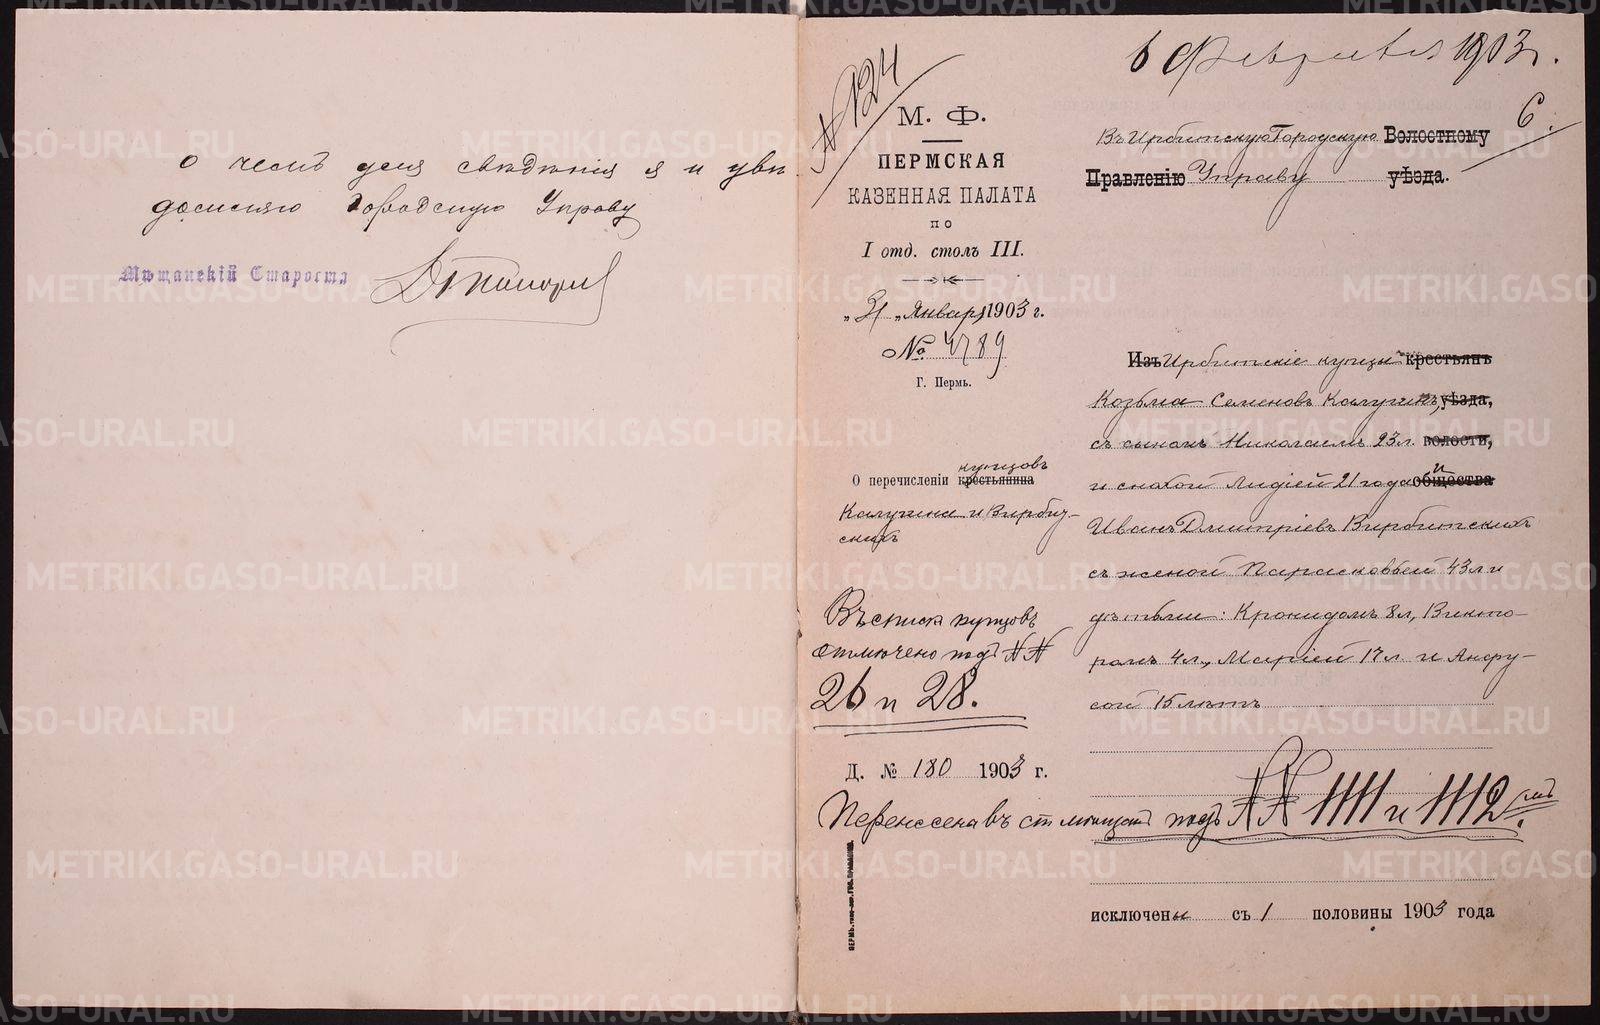 о чемъ для свѣдѣнія я и увѣ-
домляю Городскую Управу
Мѣщанскій Староста
№ 124
М. Ф.
ПЕРМСКАЯ
КАЗЕННАЯ ПАЛАТА
ПО
I отд. столъ III.
„31„ Января 1903 г.
№ 4789
Г. Пермь.
О перечисленіи крестьянина купцовъ
Калугина и Вирбит-
скихъ
Въ спискѣ купцовъ
отмѣчено подъ №№
26 и 28.
Д. № 180 1903 г.
ПЕРМЬ. ТИПО-ЛИТ. ГУБ. ПРАВЛЕНІЯ.
6 Февраля 1903 г.
6.
Въ Ирбитскую Городскую Волостному
Правленію Управу уѣзда.
Изъ Ирбитскіе купцы крестьянъ
Козьма Семеновъ Калугинъ, уѣзда,
съ сыномъ Николаемъ 23 л. волости,
и снохой Лидіей 21 года общества и
Иванъ Дмитріевъ Вирбитскихъ
съ женой Парасковьей 43 л и
дѣтьми: Кронидомъ 8 л, Викто-
ромъ 4 л., Маріей 17 л. и Анфу-
сой 15 лѣтъ
Перенесена въ мѣщан подъ №№ 1111 и 1112
исключены съ 1 половины 1903 года
METRIKI.GASO-URAL.RU